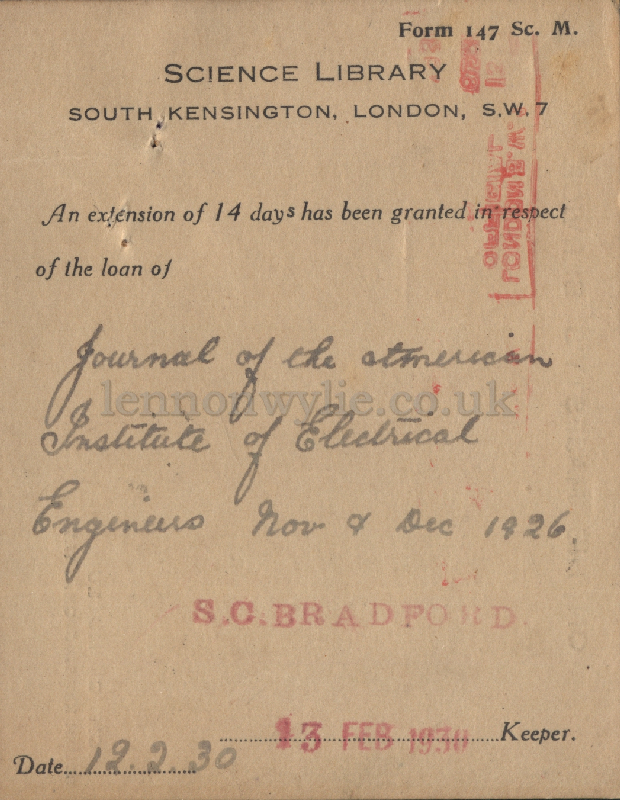 Form 147 Sc. M.
SCIENCE LIBRARY
SOUTH KENSINGTON, LONDON, S.W. 7
An extension of 14 days has been granted in respect
of the loan of
Journal of the American
lennonwylie.co.uk
Institute of Electrical
Engineers Nov & Dec 1926.
S.C. BRADFORD.
13 FEB 1930 Keeper.
Date 12.2.30